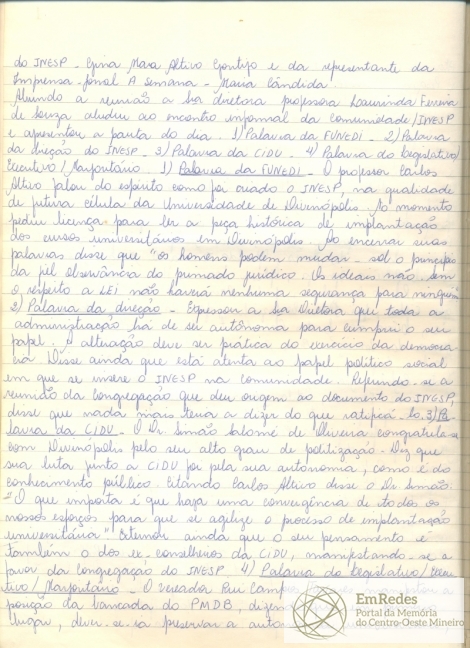 do INESP - Gina Mara Altivo Gontijo e da representante da
Imprensa - Jornal A Semana - Maria Cândida.
Abrindo a reunião a Sra diretora professora Laurinda Ferreira
de Souza aludiu ao encontro informal da comunidade/INESP
e apresentou a pauta do dia. 1) Palavra da FUNEDI - 2) Palavra
da direção do INESP - 3) Palavra da CIDU - 4) Palavra do legislativo/
Executivo / - 1) Palavra da FUNEDI - O professor Carlos
Altivo falou do espírito como foi criado o INESP, na qualidade
de futura célula da Universidade de Divinópolis. No momento
pediu licença para ler a peça histórica de implantação
dos cursos universitários em Divinópolis. Ao encerrar suas
palavras disse que "os homens podem mudar - sob o princípio
da fiel observância do primado jurídico. Os ideais não. Sem
o respeito a LEI não haverá nenhuma segurança para ninguém
2) Palavra da direção - Expressou a Sra Diretora que toda a
administração há de ser autônoma para cumprir o seu
papel. A alteração deve ser prática do exercício da democra
cia. Disse ainda que está atenta ao papel político social
em que se insere o INESP na comunidade. Referindo-se a
reunião da congregação que deu origem ao documento do INESP,
disse que nada mais teria a dizer do que ratificá-lo. 3) Pa-
lavra da CIDU - O Dr Simão Salomé de Oliveira congratula-se
com Divinópolis pelo seu alto grau de politização. Diz que
sua luta junto a CIDU foi pela sua autonomia, como é do
conhecimento público. Citando Carlos Altivo disse o Dr Simão:
"O que importa é que haja uma convergência de todos os
nossos esforços para que se agilize o processo de implantação
universitária" Externou ainda que o seu pensamento é
também o dos ex-conselheiros da CIDU, manifestando-se a
favor da congregação do INESP. 4) Palavra do legislativo / Execu
tivo / - O vereador Rui Campos
posição da bancada do PMDB, dizendo
lugar, dever-se-ia preservar a
EmRedes
Portal da Memória
do Centro-Oeste Mineiro